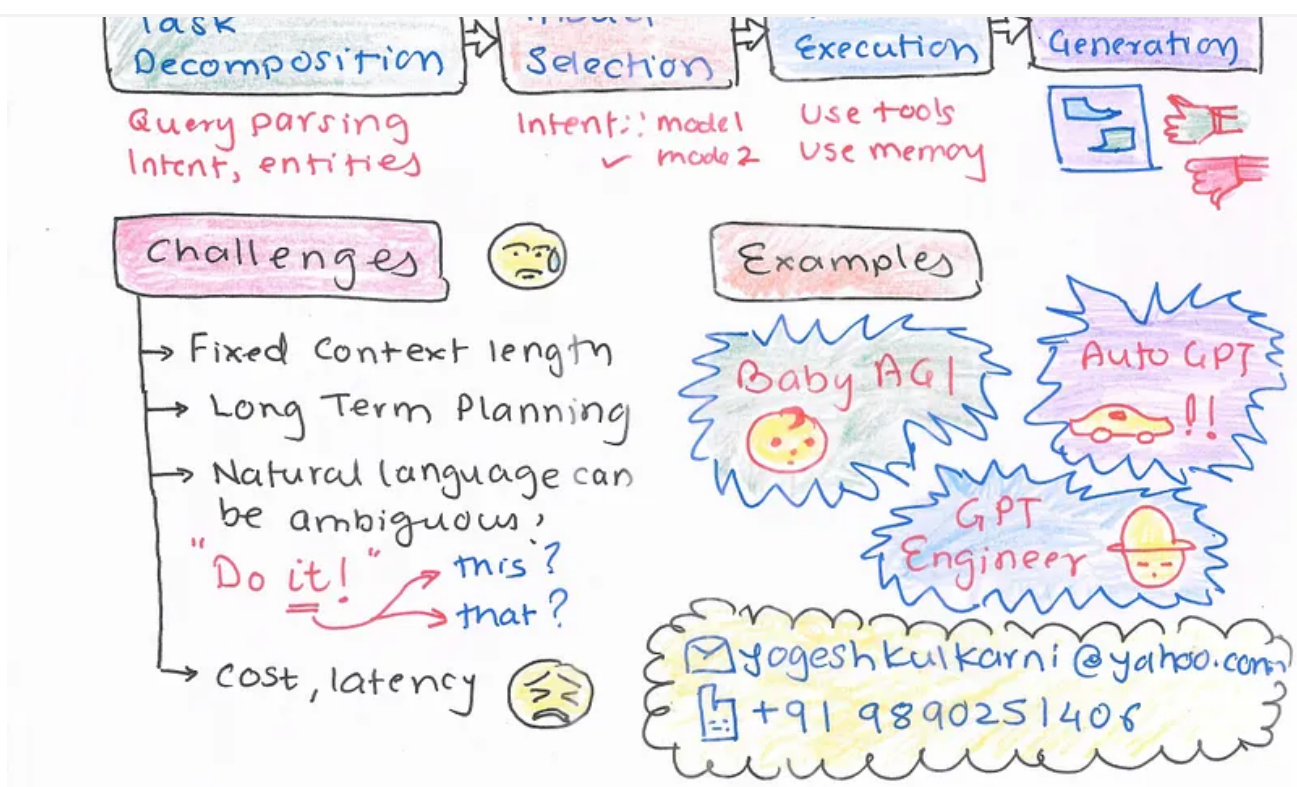 Task
Decomposition
Selection
Execution
Generation
Query parsing
Intent, entities
Intent:: model
✓ mode 2
Use tools
Use memoy
Challenges
→ Fixed Context length
→ Long Term Planning
→ Natural language can
be ambiguous,
"Do it!"
this?
that?
→ cost, latency
Examples
Baby AGI
Auto GPT
!!
GPT
Engineer
yogeshkulkarni@yahoo.com
+91 9890251406